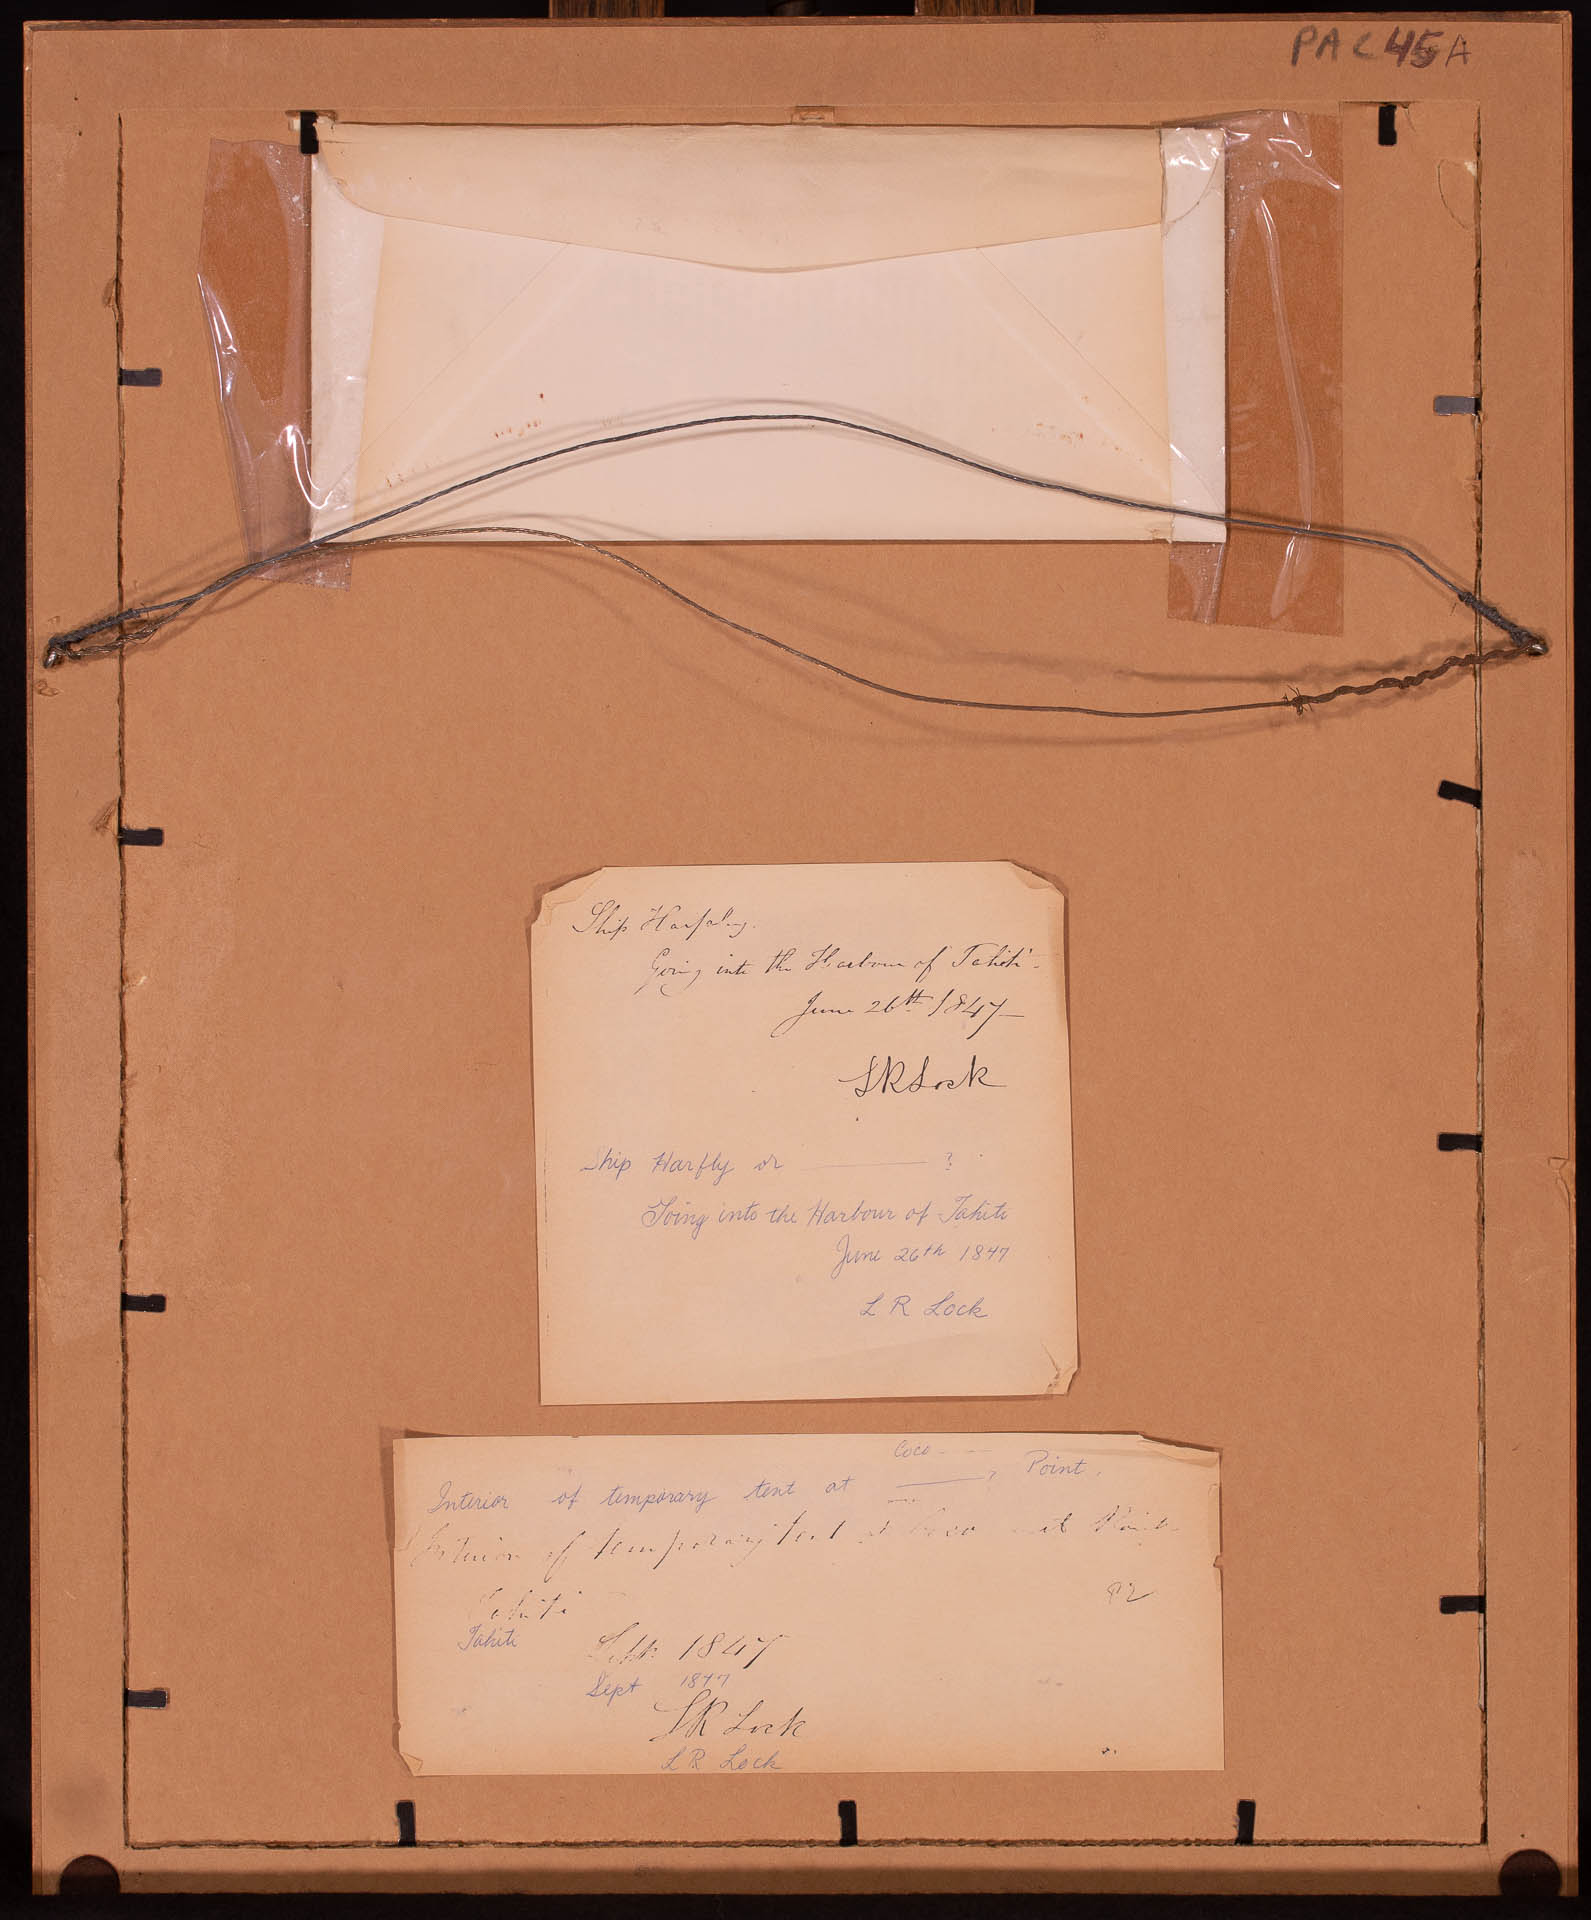 PAC 45A
Ship Harpley.
Going into the Harbour of Tahiti -
June 26th 1847
LR Lock
Ship Harfly or ——— ?
Going into the Harbour of Tahiti
June 26th 1847
L R Lock
Coco ——
Interior of temporary tent at ——— ? Point.
Interior of temporary tent at Coco Point
Tahiti
Tahiti
Sept 1847
Sept 1847
LR Lock
L R Lock